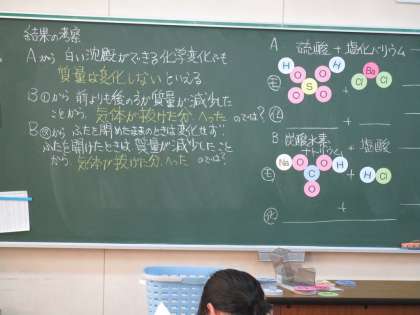 結果の考察
Aから 白い沈殿ができる化学変化でも
質量は変化しないといえる
B①から 前よりも後のほうが質量が減少した
ことから、気体が抜けた分、へったのでは?
B②から ふたを閉めたままのときは変化せず
ふたを開けたときは、質量が減少したこと
から 気体が抜けた分、へったのでは?
A 硫酸 + 塩化バリウム
H O O H
S
O O
+
Ba
Cl Cl
+
B 炭酸水素ナトリウム + 塩酸
Na O O H
C
O
+
H Cl
+